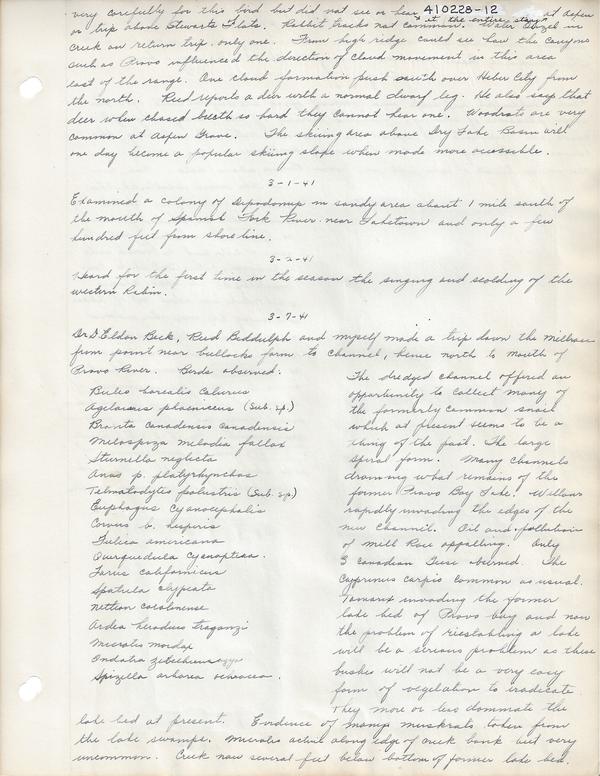 very carefully for this bird but did not see or hear it the entire stay at Aspen
410228-12
or trip above Stewarts Flats. Rabbit tracks not common. Water Ouzel in
creek on return trip, only one. From high ridge could see how the canyons
such as Provo influenced the direction of cloud movement in this area
east of the range. One cloud formation push south over Heber City from
the north. Reed reports a deer with a normal dwarf leg. He also says that
deer when chased breath so hard they cannot hear one. Woodrats are very
common at Aspen Grove. The skiing area above Dry Lake Basin will
one day become a popular skiing slope when made more accessible.
3-1-41
Examined a colony of Dipodomys in sandy area about 1 mile south of
the mouth of Spanish Fork River near Laketown and only a few
hundred feet from shore line.
3-2-41
Heard for the first time in the season the singing and scolding of the
western Robin.
3-7-41
Dr D Eldon Beck, Reed Beddulph and myself made a trip down the Millrace
from point near bullocks farm to channel, hence north to mouth of
Provo River. Birds observed:
Buteo borealis calurus
Agelaius phoeniceus (Sub. sp.)
Branta canadensis canadensis
Melospiza melodia fallax
Sturnella neglecta
Anas p. platyrhynchos
Telmatodytes palustris (Sub. sp.)
Euphagus cyanocephalis
Corvus b. hesperis
Fulica americana
Querquedula cyanoptera.
Larus californicus
Spatula clypeata
Nettion carolinense
Ardea herodius treganzi
Microtis mordax
Ondatra zibethicus
Spizella arborea ochracea.
The dredged channel offered an
opportunity to collect many of
the formerly common snail
which at present seems to be a
thing of the past. The large
spiral form. Many channels
draining what remains of the
former Provo Bay Lake. Willows
rapidly invading the edges of the
new channel. Oil and pollution
of Mill Race appalling. Only
3 Canadian Geese observed. The
Cyprinus carpio common as usual.
Tamarix invading the former
lake bed of Provo bay and now
the problem of riestabling a lake
will be a serious problem as these
bushes will not be a very easy
form of vegetation to iradicate.
They more or less dominate the
lake bed at present. Evidence of many muskrats taken from
the lake swamps. Microtis active along edge of creek bank but very
uncommon. Creek now several feet below bottom of former lake bed.